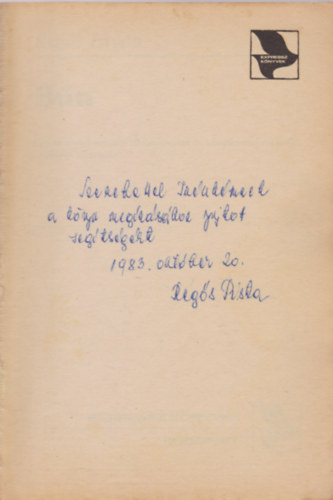 GYORSÍRÓ
KÖNYVEK
Szeretettel
a könyv megírásához nyújtott
segítségért
1983. október 20.
Regős Pista